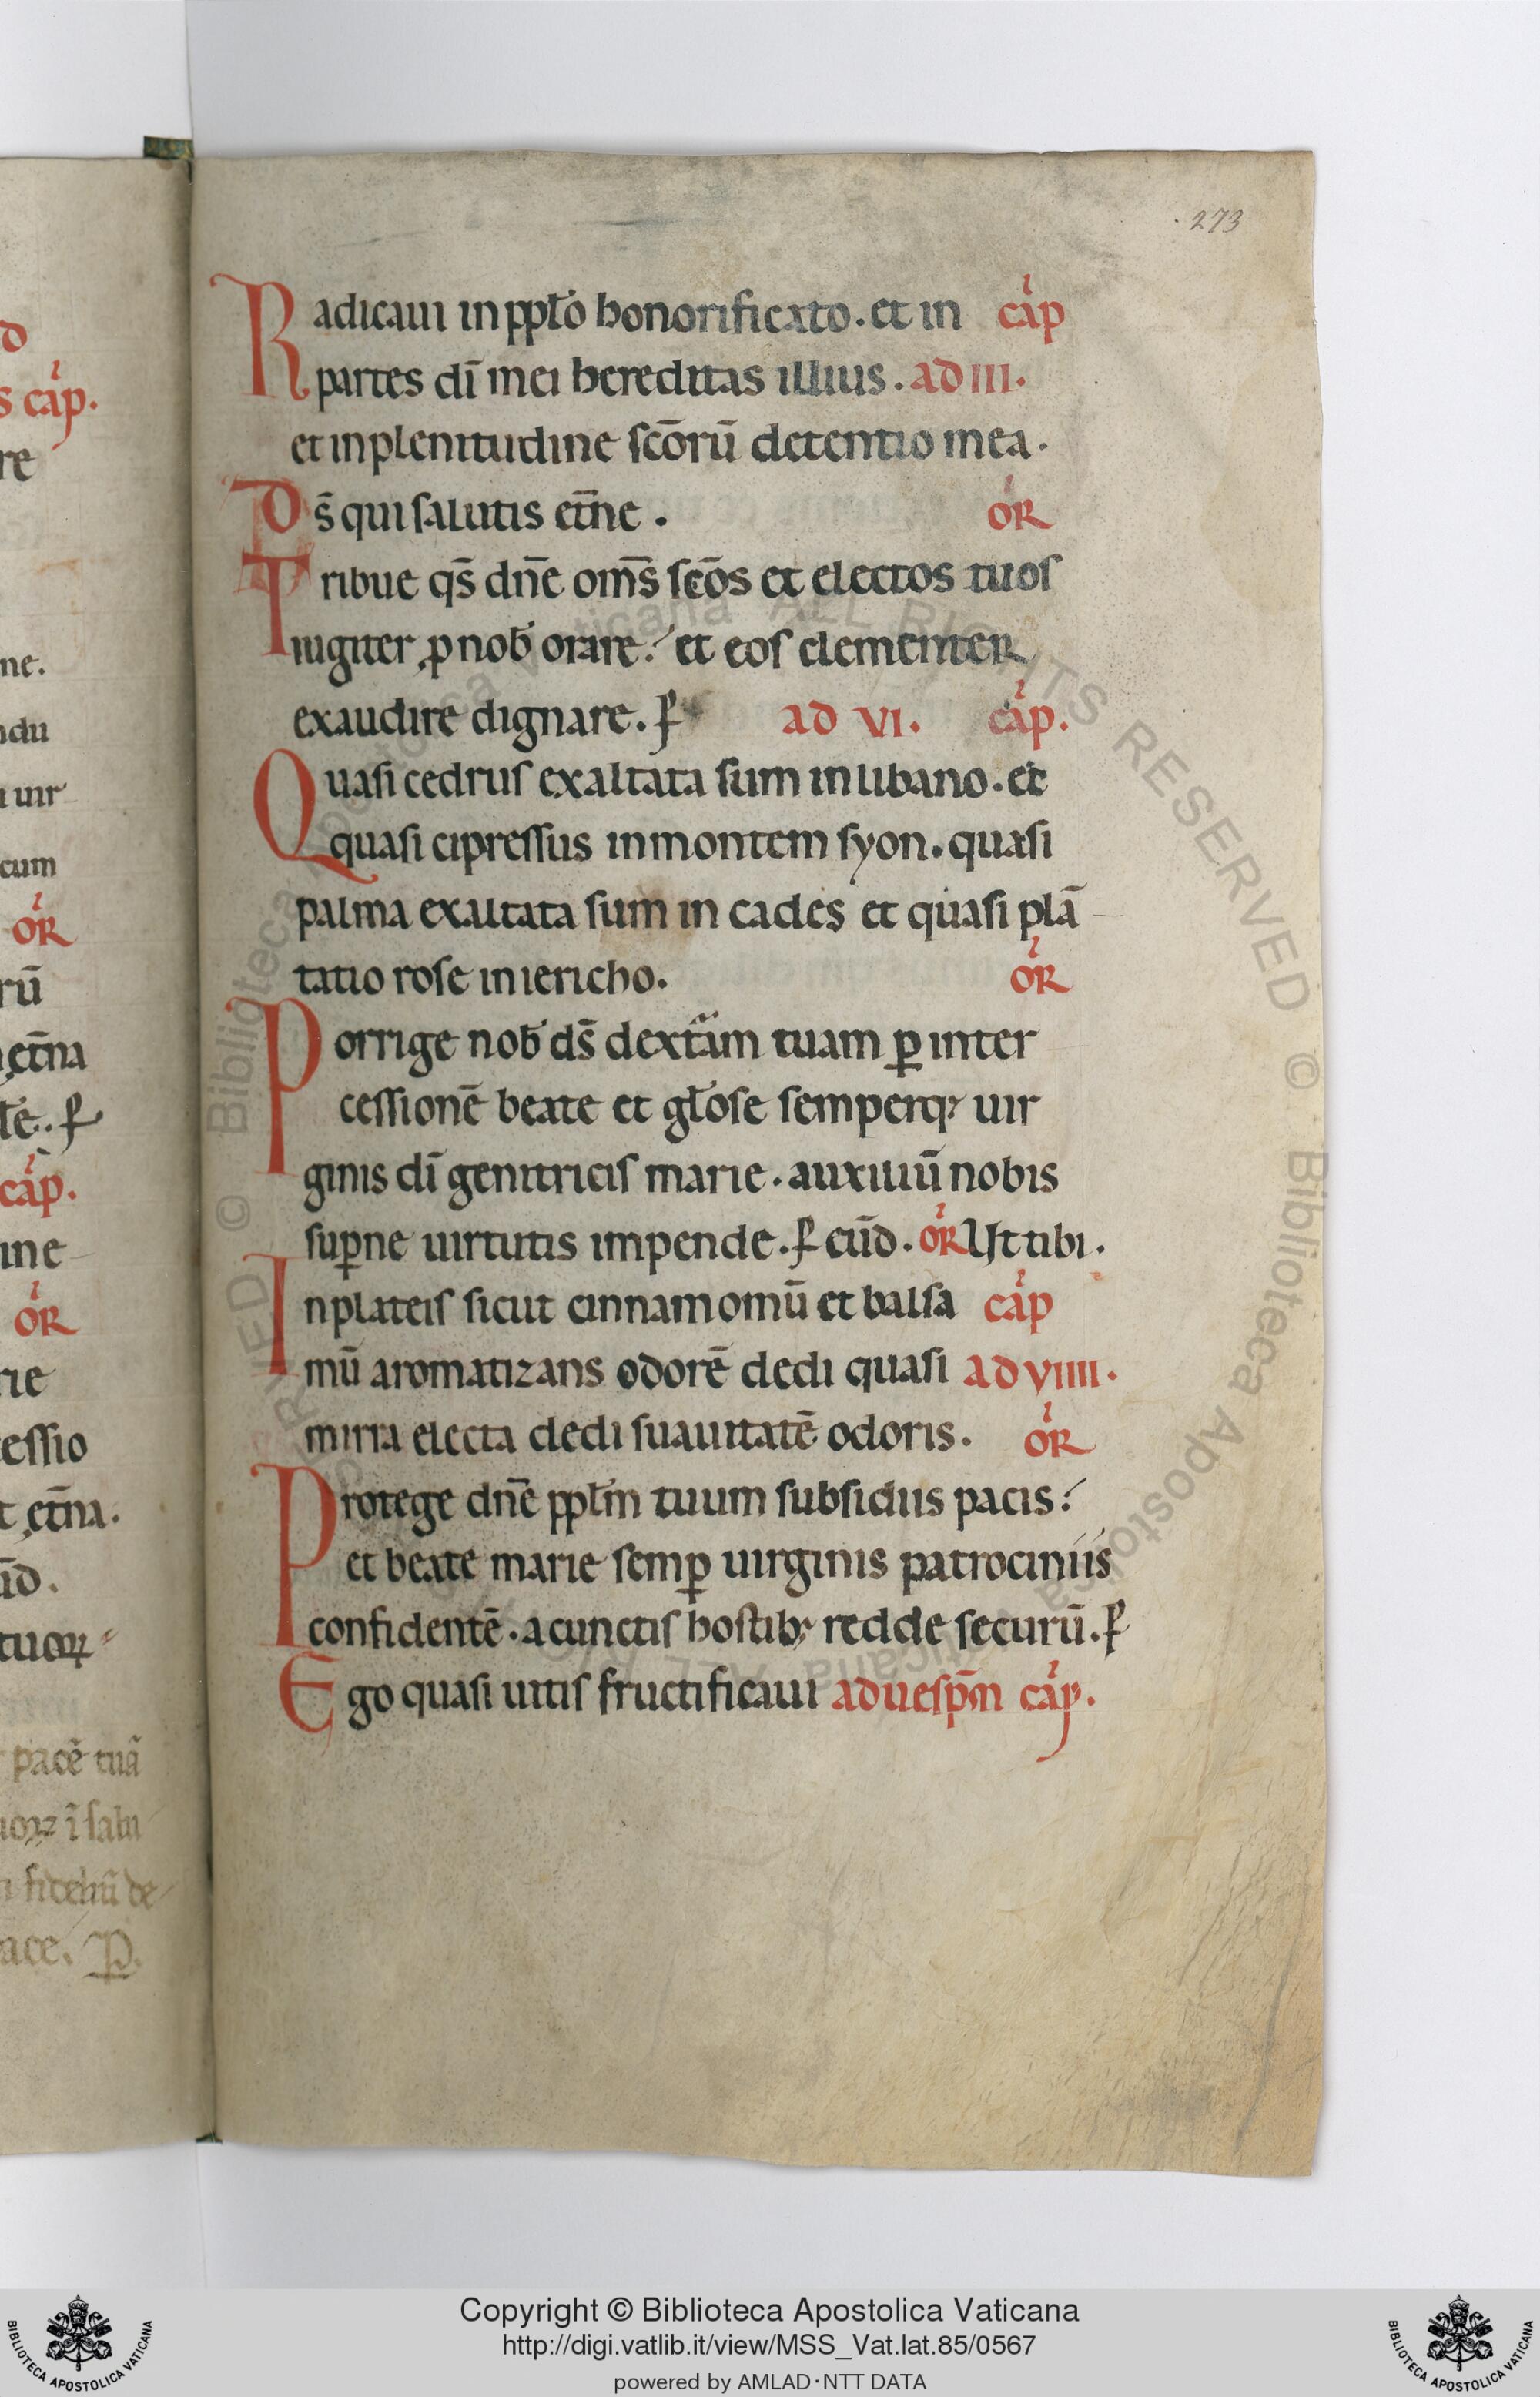 273
Radicaui in pplo honorificato. et in cap
partes di mei hereditas illius. ad III.
et in plenitudine scoru detentio mea.
Ds qui salutis etne. or
Tribue qs dne oms scos et electos tuos
iugiter p nob orare. et eos clementer
exaudire dignare. P ad VI. cap.
Quasi cedrus exaltata sum in libano. et
quasi cipressus in montem syon. quasi
palma exaltata sum in cades et quasi pla
tatio rose in iericho. or
Porrige nob ds dextam tuam p inter
cessione beate et glose semperq; uir
ginis di genitricis marie. auxiliu nobis
supne uirtutis impende. P eud. or Ut tibi.
In plateis sicut cinnamomu et balsa cap
mu aromatizans odore dedi quasi ad VIIII.
mirra electa dedi suauitate odoris. or
Protege dne pplm tuum subsidiis pacis.
et beate marie semp uirginis patrociniis
confidente. a cunctis hostib; redde securu. P
Ego quasi uitis fructificaui ad uespm cap.
Copyright © Biblioteca Apostolica Vaticana
http://digi.vatlib.it/view/MSS_Vat.lat.85/0567
powered by AMLAD·NTT DATA
BIBLIOTECA APOSTOLICA VATICANA
BIBLIOTECA APOSTOLICA VATICANA